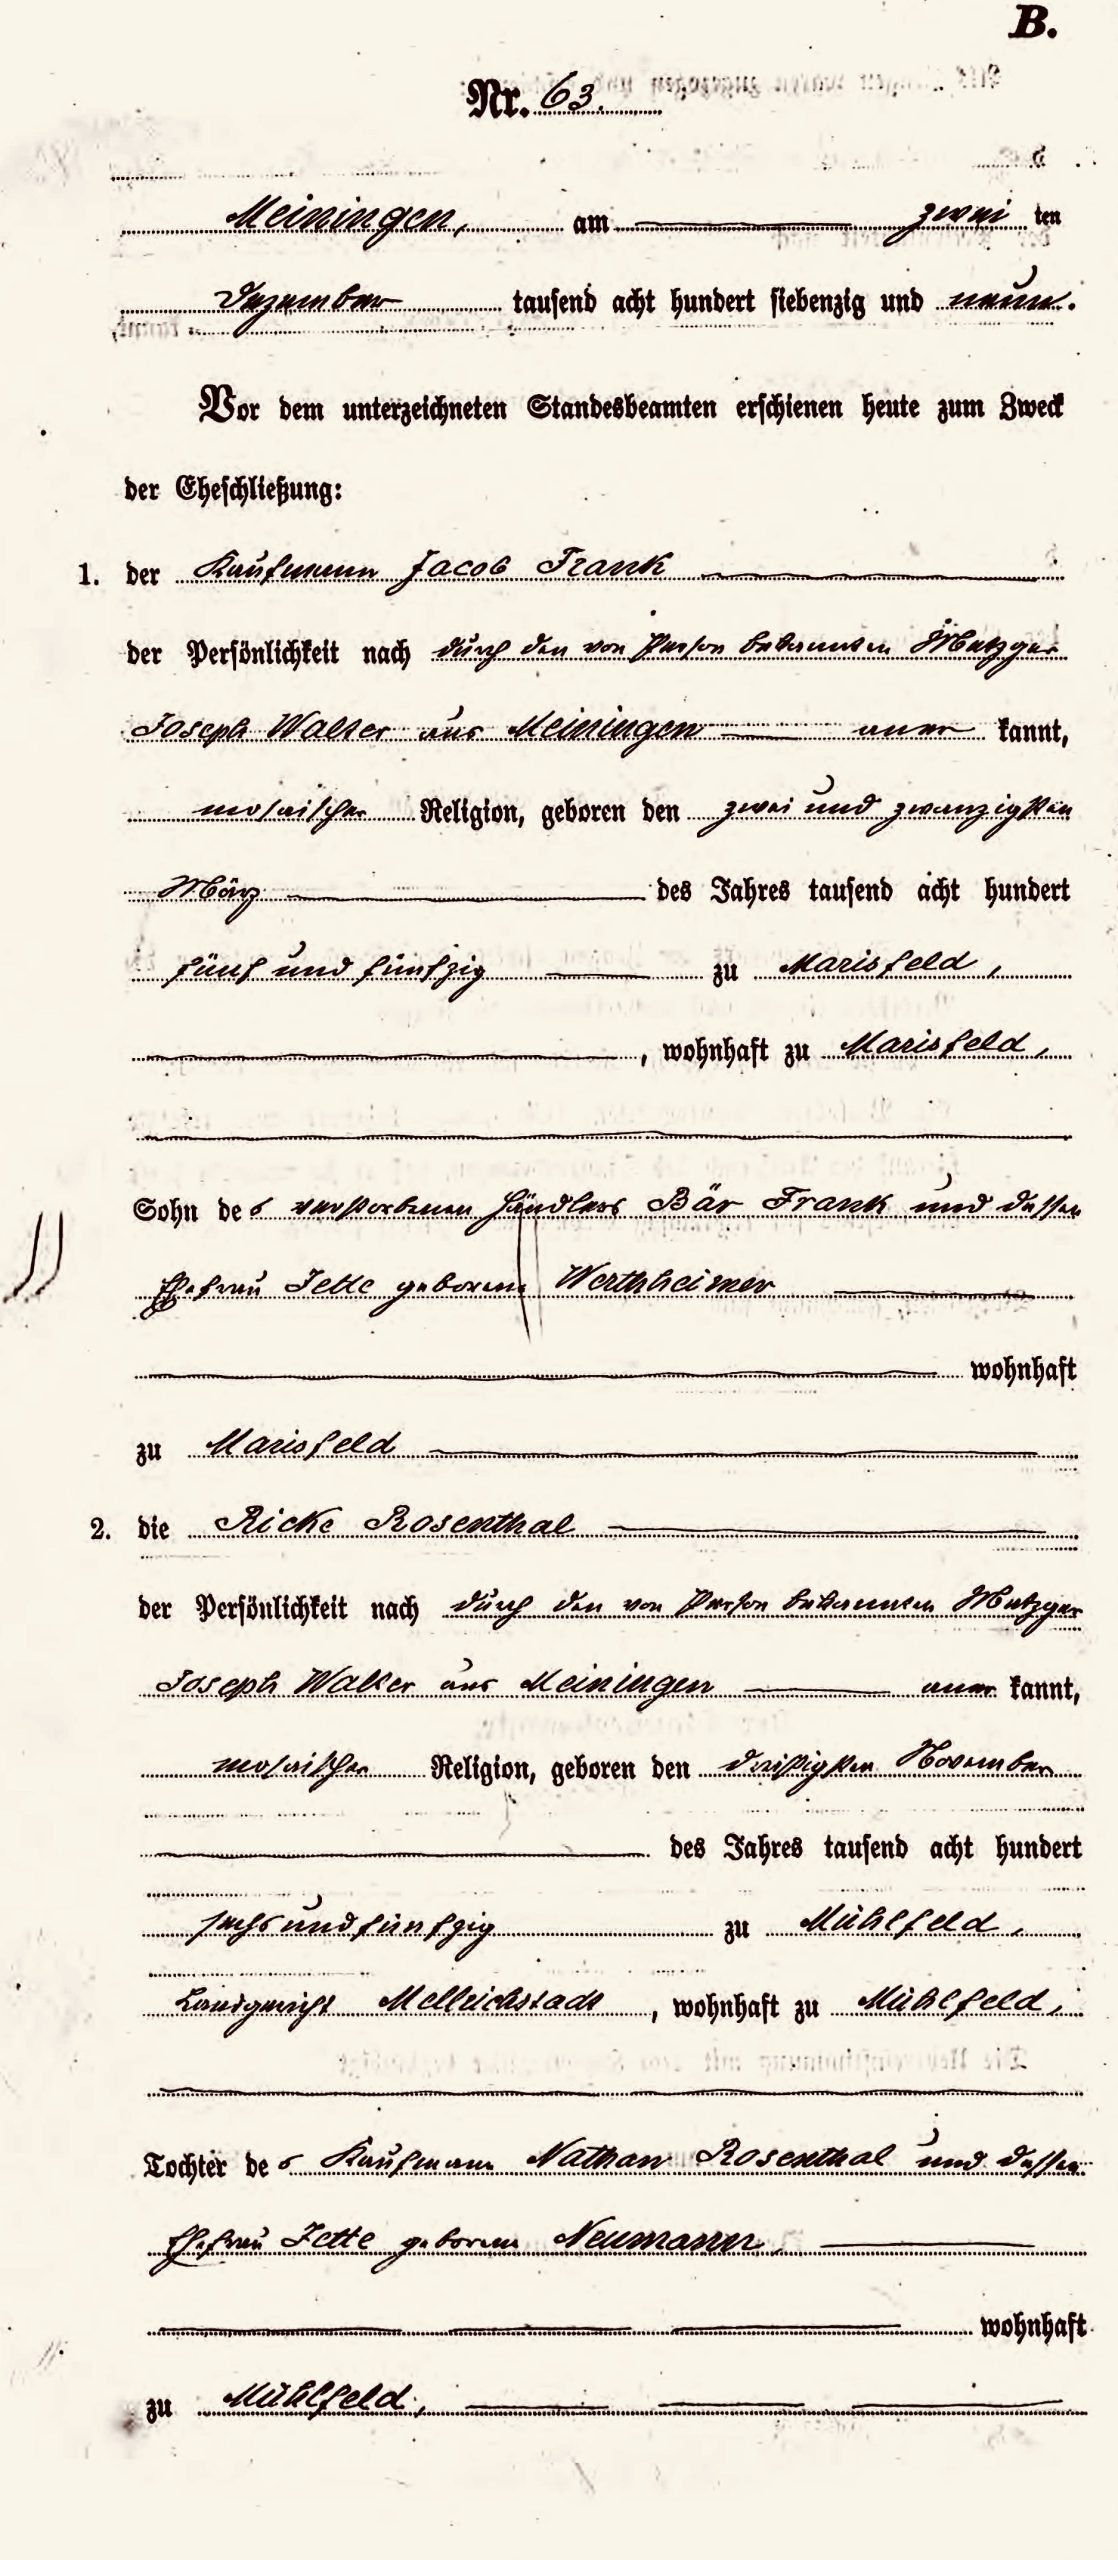 B.
Nr. 63.
Meiningen, am zwei ten
Dezember tausend acht hundert siebenzig und neun.
Vor dem unterzeichneten Standesbeamten erschienen heute zum Zweck
der Eheschließung:
1. der Kaufmann Jacob Frank
der Persönlichkeit nach durch den von Person bekannten Metzger
Joseph Walter aus Meiningen aner kannt,
mosaischer Religion, geboren den zwei und zwanzigsten
März des Jahres tausend acht hundert
fünf und fünfzig zu Marisfeld,
, wohnhaft zu Marisfeld,
Sohn des verstorbenen Händlers Bär Frank und dessen
Ehefrau Jette geborene Werthheimer
wohnhaft
zu Marisfeld
2. die Ricke Rosenthal
der Persönlichkeit nach durch den von Person bekannten Metzger
Joseph Walter aus Meiningen aner kannt,
mosaischer Religion, geboren den dreißigsten November
des Jahres tausend acht hundert
sechs und fünfzig zu Mühlfeld,
Landgericht Mellrichstadt, wohnhaft zu Mühlfeld,
Tochter des Kaufmann Nathan Rosenthal und dessen
Ehefrau Jette geborene Neumann,
wohnhaft
zu Mühlfeld,